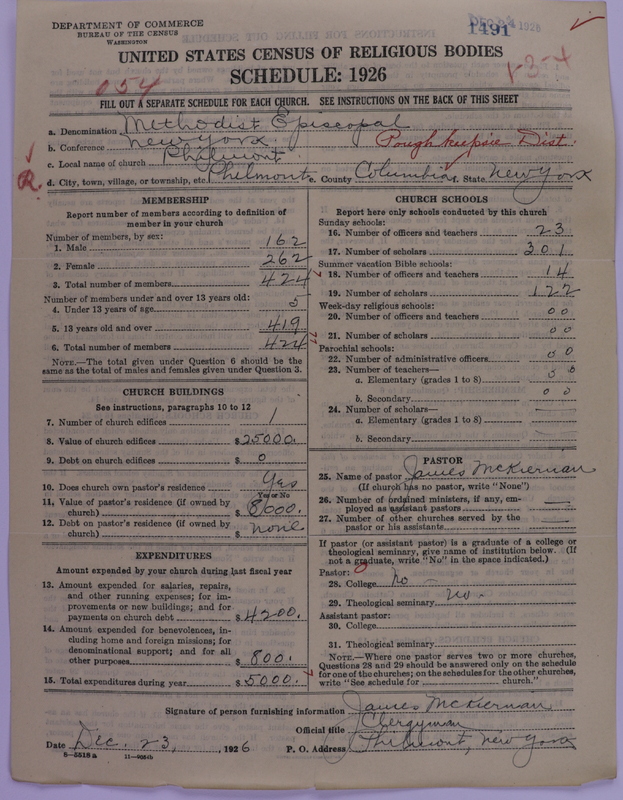 DEPARTMENT OF COMMERCE
BUREAU OF THE CENSUS
WASHINGTON
1491
UNITED STATES CENSUS OF RELIGIOUS BODIES
SCHEDULE: 1926
054
FILL OUT A SEPARATE SCHEDULE FOR EACH CHURCH. SEE INSTRUCTIONS ON THE BACK OF THIS SHEET
a. Denomination Methodist Episcopal
b. Conference New York Poughkeepsie Dist.
c. Local name of church Philmont
d. City, town, village, or township, etc. Philmont e. County Columbia f. State New York
R.
MEMBERSHIP
Report number of members according to definition of
member in your church
Number of members, by sex:
1. Male 162
2. Female 262
3. Total number of members 424
Number of members under and over 13 years old:
4. Under 13 years of age 5
5. 13 years old and over 419
6. Total number of members 424
NOTE.—The total given under Question 6 should be the
same as the total of males and females given under Question 3.
CHURCH BUILDINGS
See instructions, paragraphs 10 to 12
7. Number of church edifices 1
8. Value of church edifices $25000.
9. Debt on church edifices $ 0
10. Does church own pastor's residence Yes
Yes or No
11. Value of pastor's residence (if owned by
church) $8000.
12. Debt on pastor's residence (if owned by
church) $ none
EXPENDITURES
Amount expended by your church during last fiscal year
13. Amount expended for salaries, repairs,
and other running expenses; for im-
provements or new buildings; and for
payments on church debt $4200.
14. Amount expended for benevolences, in-
cluding home and foreign missions; for
denominational support; and for all
other purposes $ 800.
15. Total expenditures during year $5000.
CHURCH SCHOOLS
Report here only schools conducted by this church
Sunday schools:
16. Number of officers and teachers 23
17. Number of scholars 301
Summer vacation Bible schools:
18. Number of officers and teachers 14
19. Number of scholars 122
Week-day religious schools:
20. Number of officers and teachers 00
21. Number of scholars 00
Parochial schools:
22. Number of administrative officers 00
23. Number of teachers—
a. Elementary (grades 1 to 8) 00
b. Secondary 00
24. Number of scholars—
a. Elementary (grades 1 to 8)
b. Secondary
PASTOR
25. Name of pastor James McKiernan
(If church has no pastor, write "None")
26. Number of ordained ministers, if any, em-
ployed as assistant pastors
27. Number of other churches served by the
pastor or his assistants
If pastor (or assistant pastor) is a graduate of a college or
theological seminary, give name of institution below. (If
not a graduate, write "No" in the space indicated.)
Pastor:
28. College No
29. Theological seminary No
Assistant pastor:
30. College
31. Theological seminary
NOTE.—Where one pastor serves two or more churches,
Questions 28 and 29 should be answered only on the schedule
for one of the churches; on the schedules for the other churches,
write "See schedule for church."
Signature of person furnishing information James McKiernan
Official title Clergyman
Date Dec. 23, 1926 P. O. Address Philmont, New York
8-5518a